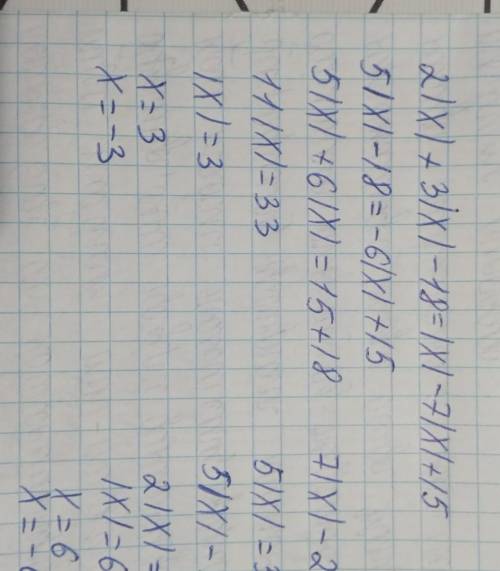 2|x| + 3|x| - 18 = |x| - 7|x| + 15
5|x| - 18 = -6|x| + 15
5|x| + 6|x| = 15 + 18
11|x| = 33
|x| = 3
x = 3
x = -3
7|x| - 2
5|x| =
5|x| -
2|x| =
|x| = 6
x = 6
x = -